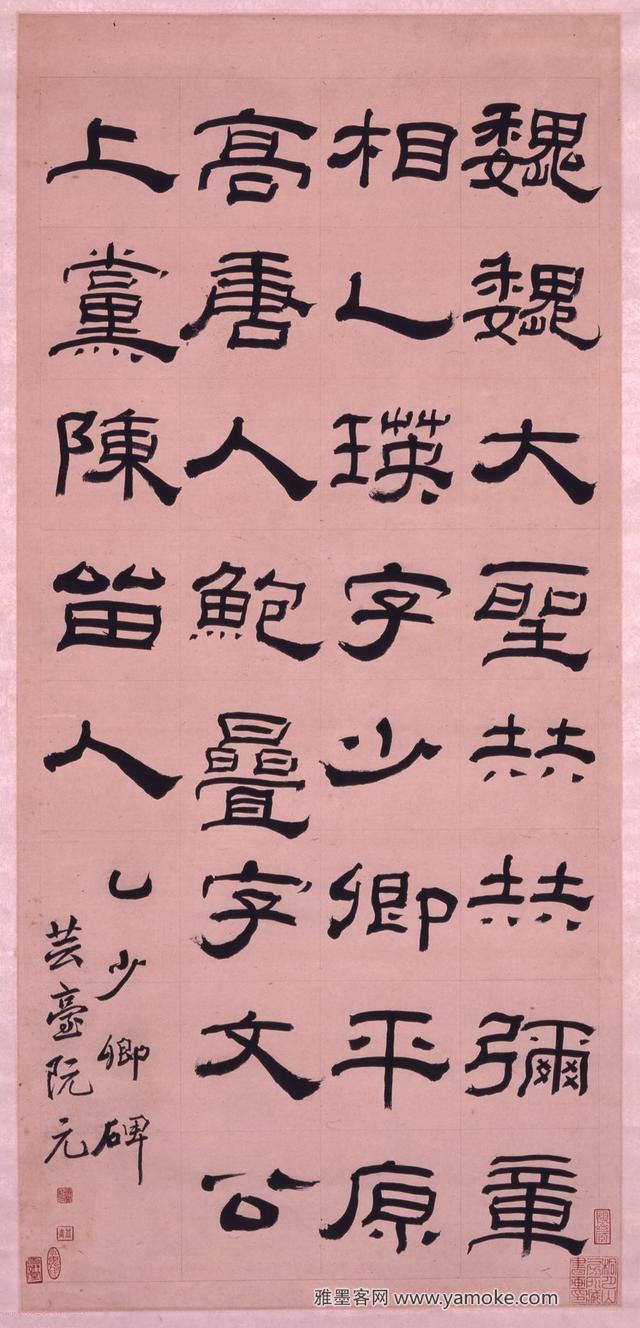 魏魏大聖赫赫彌章
相乙瑛字少卿平原
高唐人鮑疊字文公
上黨陳留人
乙少卿碑
芸臺阮元
雅墨客网 www.yamoke.com